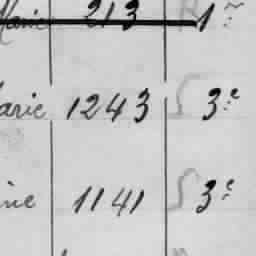 Marie 213 1re
arie 1243 S 3e
ine 1141 S 3e